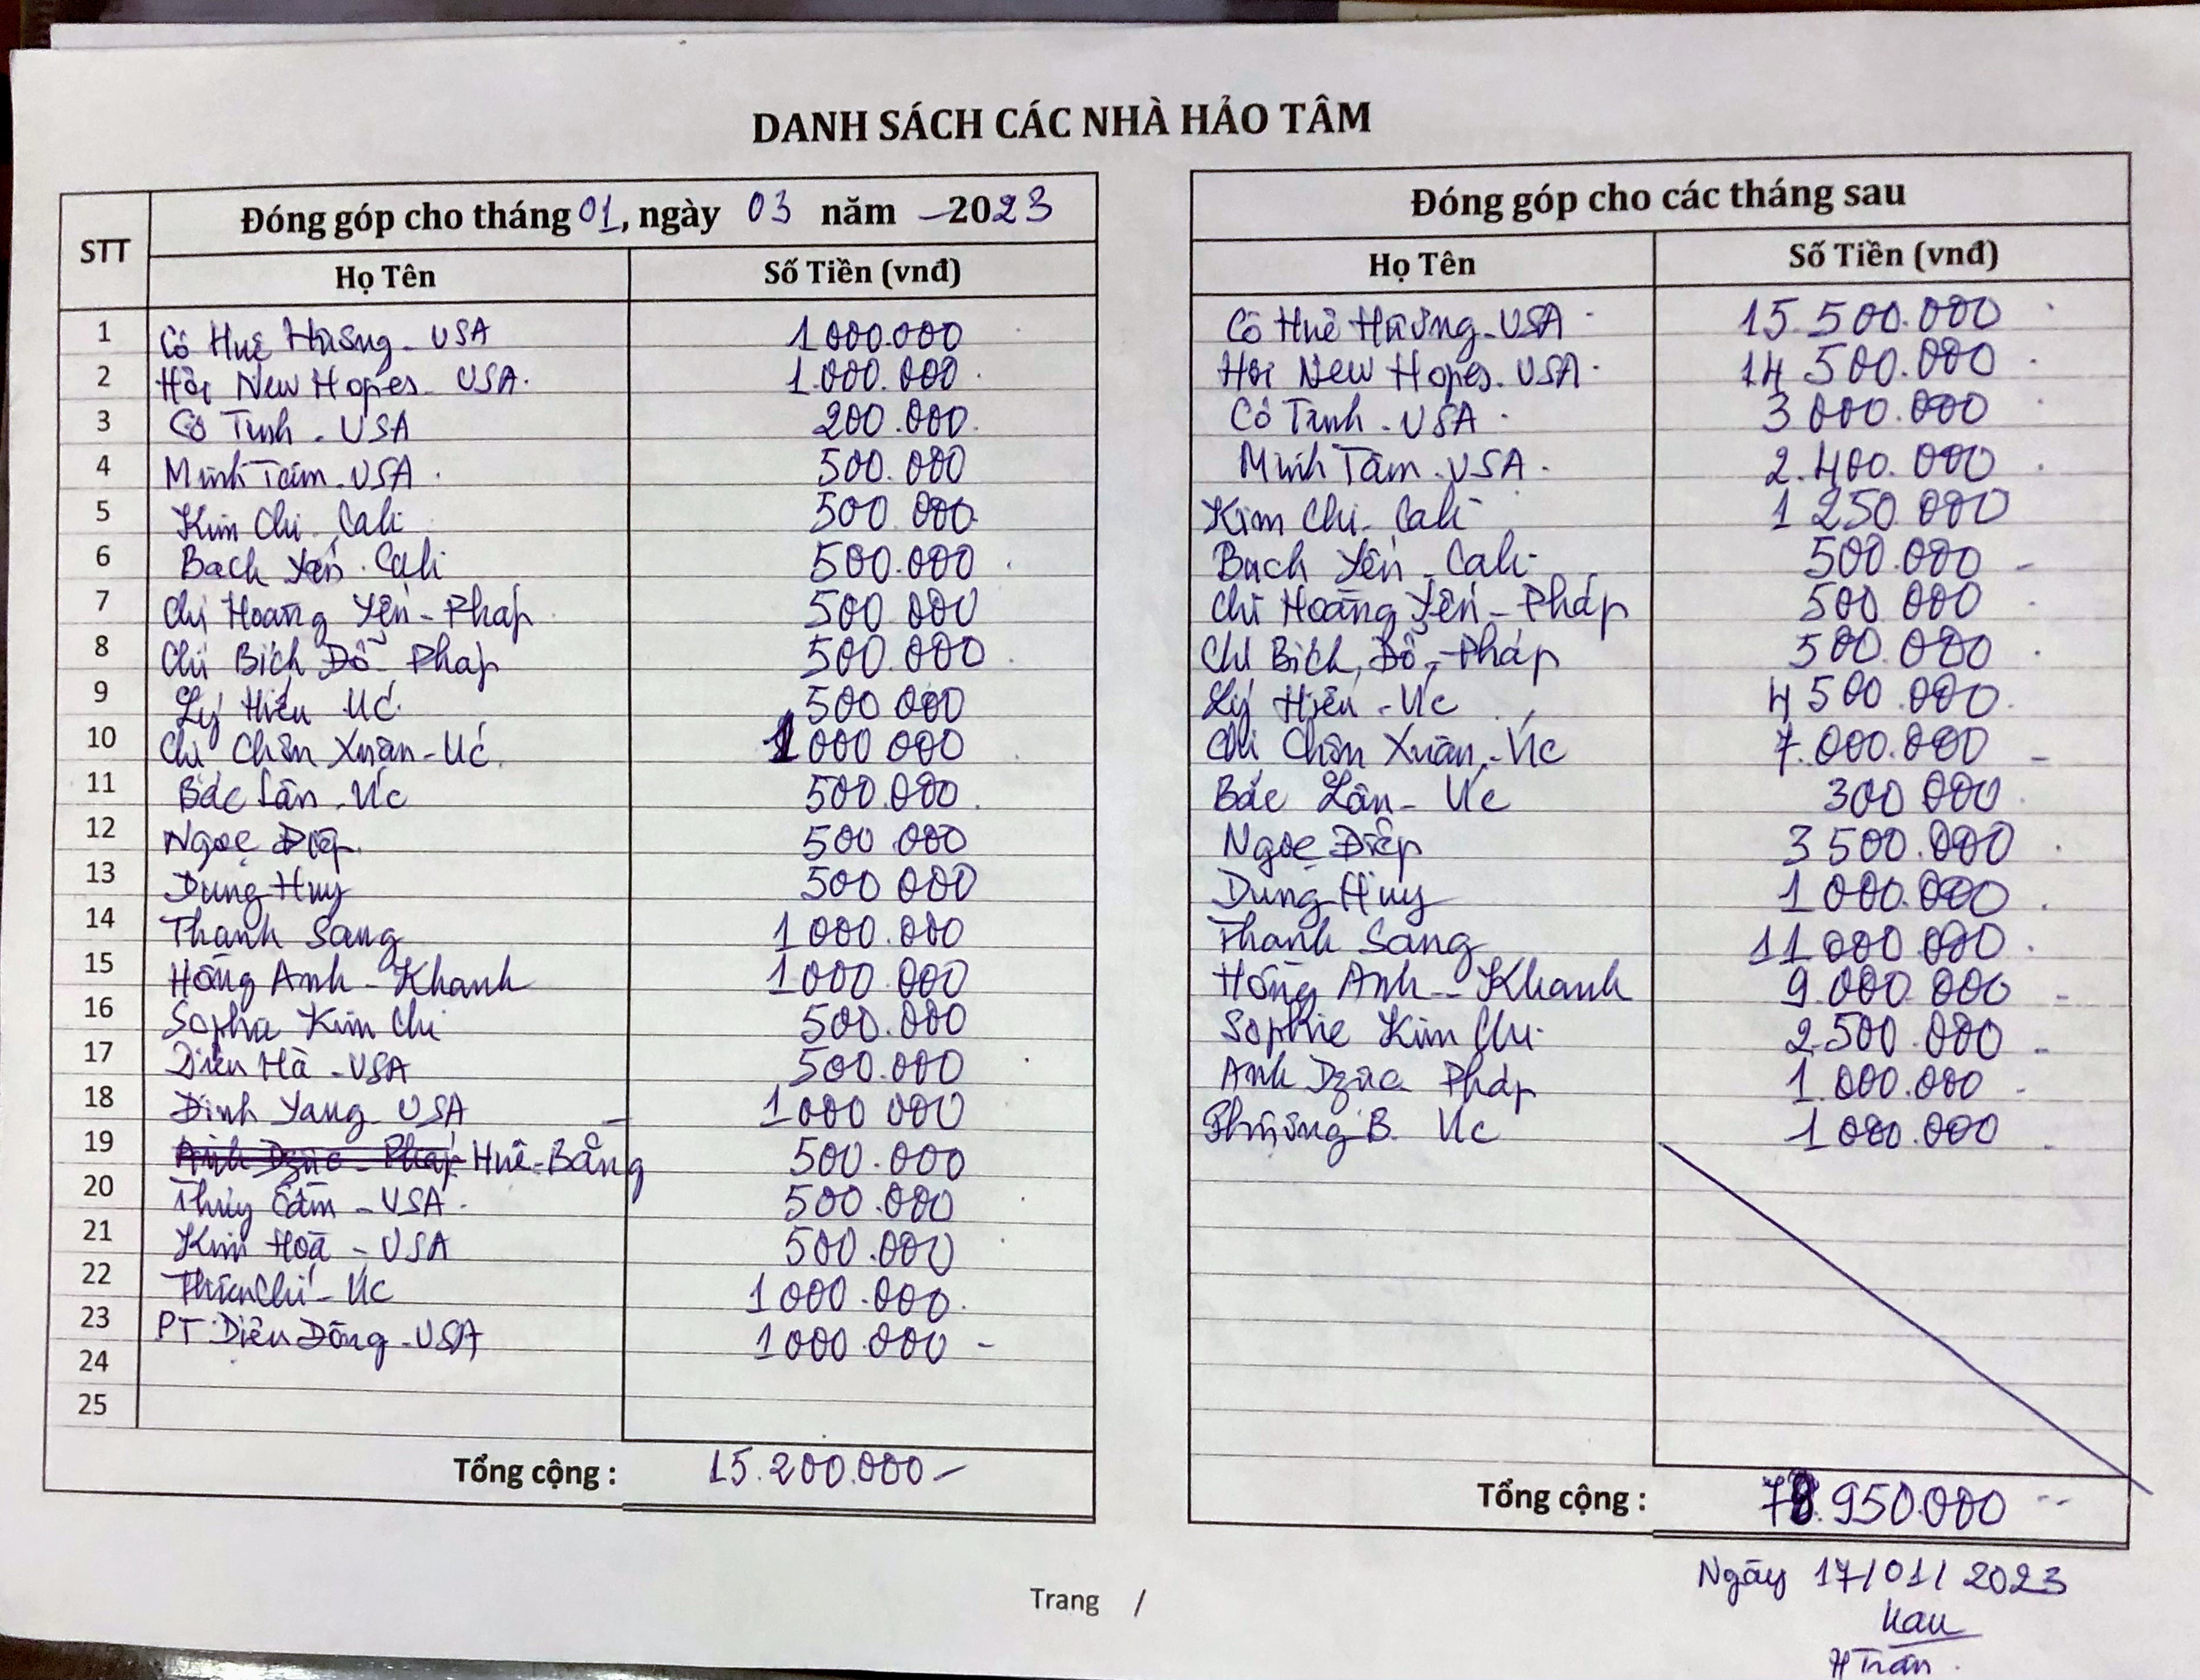 DANH SÁCH CÁC NHÀ HẢO TÂM
STT
Đóng góp cho tháng 01, ngày 03 năm -2023
Họ Tên Số Tiền (vnđ)
1 Cô Huệ Hương - USA 1000.000
2 Hội New Hopes - USA. 1.000.000
3 Cô Tịnh - USA 200.000
4 Minh Tâm - USA. 500.000
5 Kim Chi - Cali 500 000
6 Bạch Yến. Cali 500.000
7 Chị Hoàng Yến - Pháp 500 000
8 Chị Bích Đỗ - Pháp 500.000
9 Lý Hiếu Úc 500 000
10 Chị Chơn Xuân - Úc 1000 000
11 Bác Lân - Úc 500.000
12 Ngọc Điệp 500 000
13 Dung Huy 500 000
14 Thanh Sang 1000.000
15 Hồng Anh - Khanh 1000.000
16 Sophia Kim Chi 500.000
17 Diệu Hà - USA 500.000
18 Đinh Yang USA 1000 000
19 Anh Dzũa - Pháp Huê-Bằng 500.000
20 Thủy Cầm - USA. 500.000
21 Kim Hoà - USA 500.000
22 Thiện Chí - Úc 1000.000
23 PT. Diệu Đồng - USA 1000.000 -
24
25
Tổng cộng : 15.200.000 -
Đóng góp cho các tháng sau
Họ Tên Số Tiền (vnđ)
Cô Huê Hương - USA 15.500.000
Hội New Hopes. USA. 14 500.000
Cô Tịnh - USA 3 000.000
Minh Tâm - USA. 2.400.000
Kim Chi - Cali 1 250 000
Bạch Yến - Cali 500.000 -
Chị Hoàng Yến - Pháp 500 000
Chị Bích Đỗ - Pháp 500.000
Lý Hiếu - Úc 4 500.000
Chị Chơn Xuân - Úc 7.000.000 -
Bác Lân - Úc 300 000
Ngọc Điệp 3 500.000
Dung Huy 1 000.000
Thanh Sang 11 000 000
Hồng Anh - Khanh 9.000 000 -
Sophie Kim Chi 2.500.000 -
Anh Dzũa Pháp 1.000.000 -
Phương B. Úc 1 000.000
Tổng cộng : 78.950.000 --
Ngày 17/01/2023
H Trân
Trang /